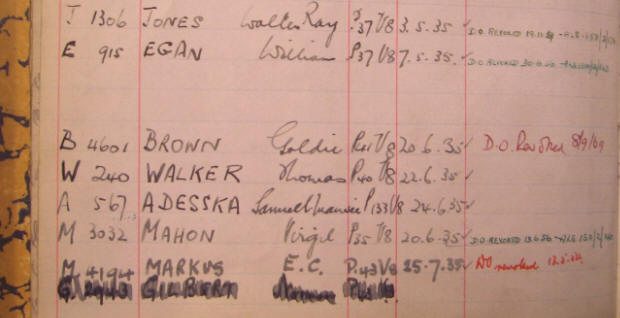 J 1306 JONES Walter Ray P37 V8 3.5.35 ✓ D.O. REVOKED
E 915 EGAN William P37 V8 7.5.35. ✓ D.O. REVOKED
B 4601 BROWN Goldie P41 V8 20.6.35 ✓ D.O.
W 240 WALKER Thomas P40 V8 22.6.35 ✓
A 567 ADESSKA Samuel P133 V8 24.6.35 ✓
M 3032 MAHON Virgil P35 V8 20.6.35 ✓ D.O. REVOKED
M 4194 MARKUS E.C. P.43 V8 25.7.35 ✓ DO revoked
GILBERT